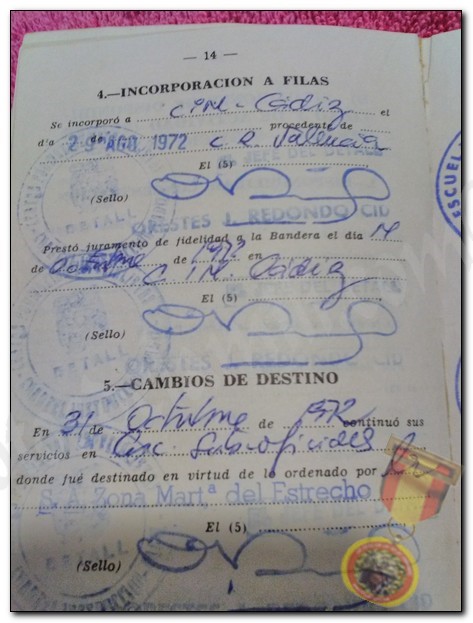 — 14 —
4.—INCORPORACION A FILAS
Se incorporó a CIM - Cádiz el
día de 29 AGO 1972 procedente de C.R. Valencia
El (5)
JEFE DEL DETALL
(Sello)
DETALL
ORESTES J. REDONDO CID
Prestó juramento de fidelidad a la Bandera el día 14
de Octubre de 1972 en
CIM. Cádiz
El (5)
(Sello)
DETALL
ORESTES J. REDONDO CID
5.—CAMBIOS DE DESTINO
En 31 de Octubre de 1972 continuó sus
servicios en Esc Suboficiales
donde fué destinado en virtud de lo ordenado por
S. A. Zona Mart.ª del Estrecho
El (5)
(Sello)
DETALL
ESCUEL